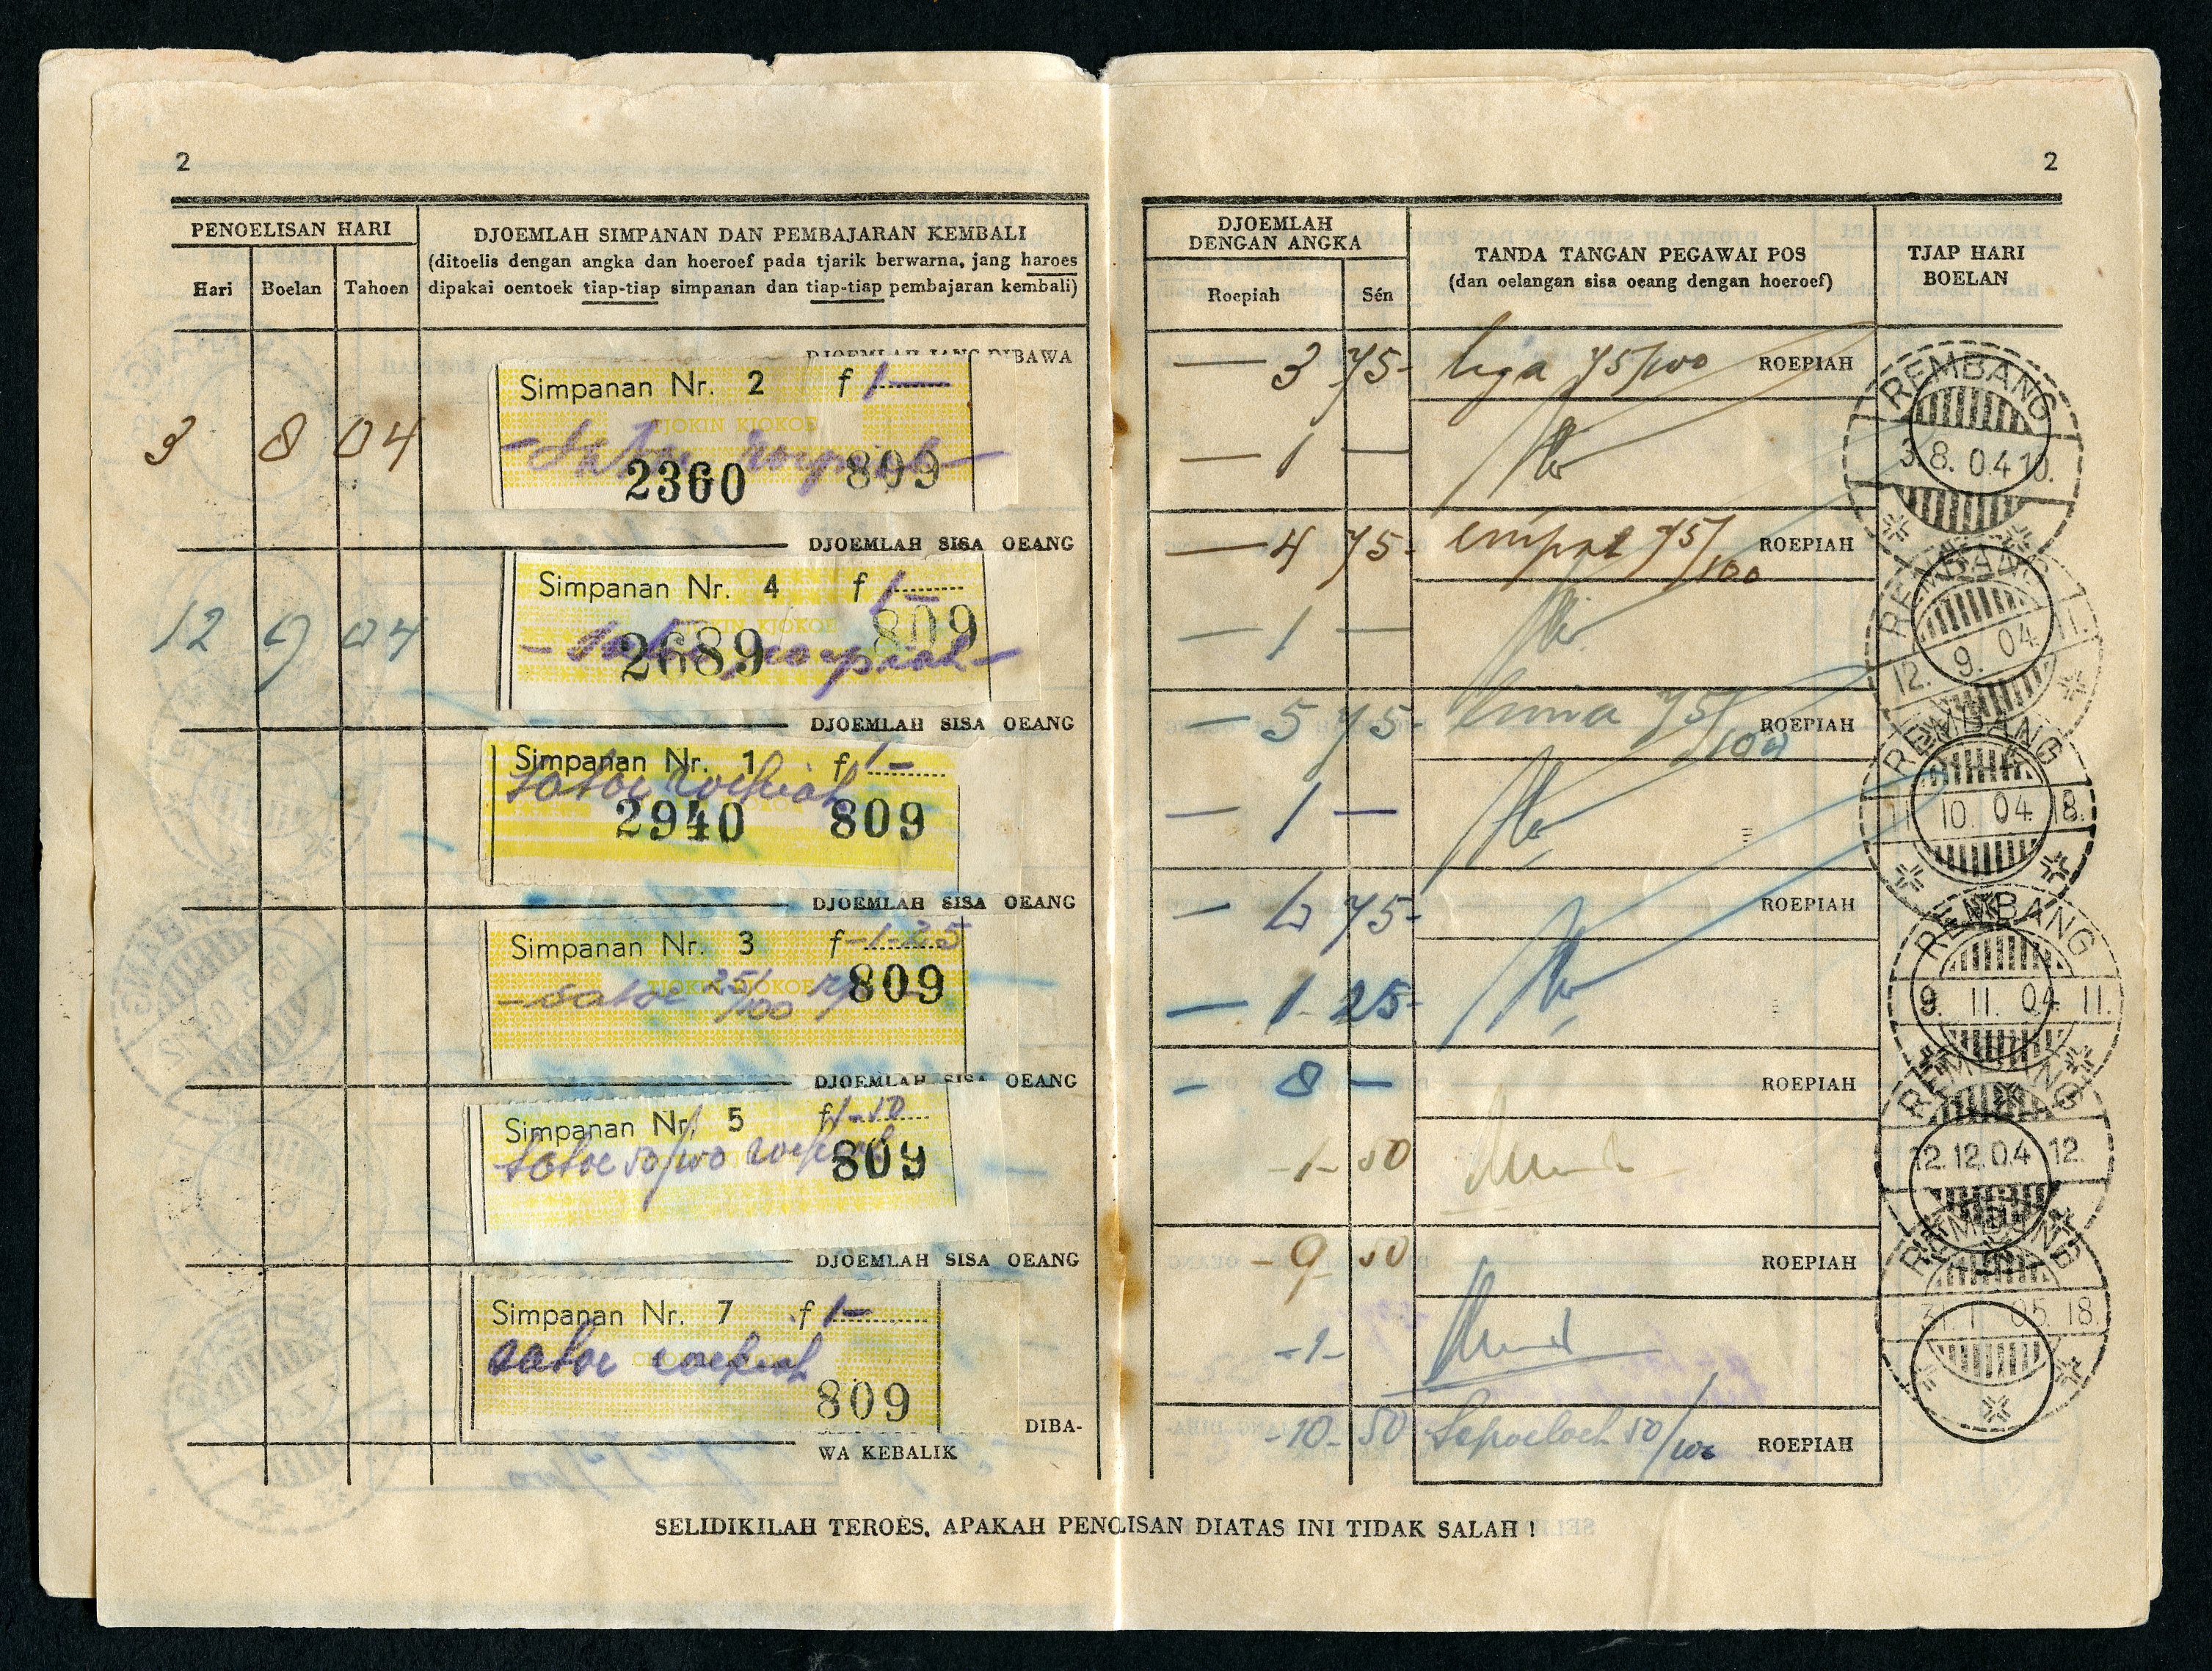 2
PENOELISAN HARI
Hari Boelan Tahoen
DJOEMLAH SIMPANAN DAN PEMBAJARAN KEMBALI
(ditoelis dengan angka dan hoeroef pada tjarik berwarna, jang haroes
dipakai oentoek tiap-tiap simpanan dan tiap-tiap pembajaran kembali)
DJOEMLAH JANG DIBAWA
3 8 04
Simpanan Nr. 2 f 1—
TJOKIN KJOKOE
- satoe roepiah -
2360 809
DJOEMLAH SISA OEANG
12 9 04
Simpanan Nr. 4 f 1—
KIN KJOKOE
809
- satoe roepiah -
2689
DJOEMLAH SISA OEANG
Simpanan Nr. 1 f 1-
satoe roepiah
2940 809
DJOEMLAH SISA OEANG
Simpanan Nr. 3 f -1-25
TJOKIN KJOKOE
- satoe 25/100 rp
809
DJOEMLAH SISA OEANG
Simpanan Nr. 5 f 1-50
satoe 50/100 roepiah
809
DJOEMLAH SISA OEANG
Simpanan Nr. 7 f 1-
satoe roepiah
809
DIBA-
WA KEBALIK
2
DJOEMLAH
DENGAN ANGKA
Roepiah Sén
TANDA TANGAN PEGAWAI POS
(dan oelangan sisa oeang dengan hoeroef)
TJAP HARI
BOELAN
— 3 75- tiga 75/100 ROEPIAH
— 1 —
REMBANG
3. 8. 04 10.
— 4 75- empat 75/100 ROEPIAH
— 1 —
REMBANG
12. 9. 04 11.
— 5 75- lima 75/100 ROEPIAH
— 1 —
REMBANG
11 10. 04 18.
— 6 75- ROEPIAH
— 1 25-
REMBANG
9. 11. 04 11.
- 8 — ROEPIAH
-1- 50
REMBANG
12.12.04 12.
- 9 50 ROEPIAH
-1-
REMBANG
31. 1 05 18.
-10- 50 Sepoeloeh 50/100 ROEPIAH
SELIDIKILAH TEROES, APAKAH PENOLISAN DIATAS INI TIDAK SALAH !